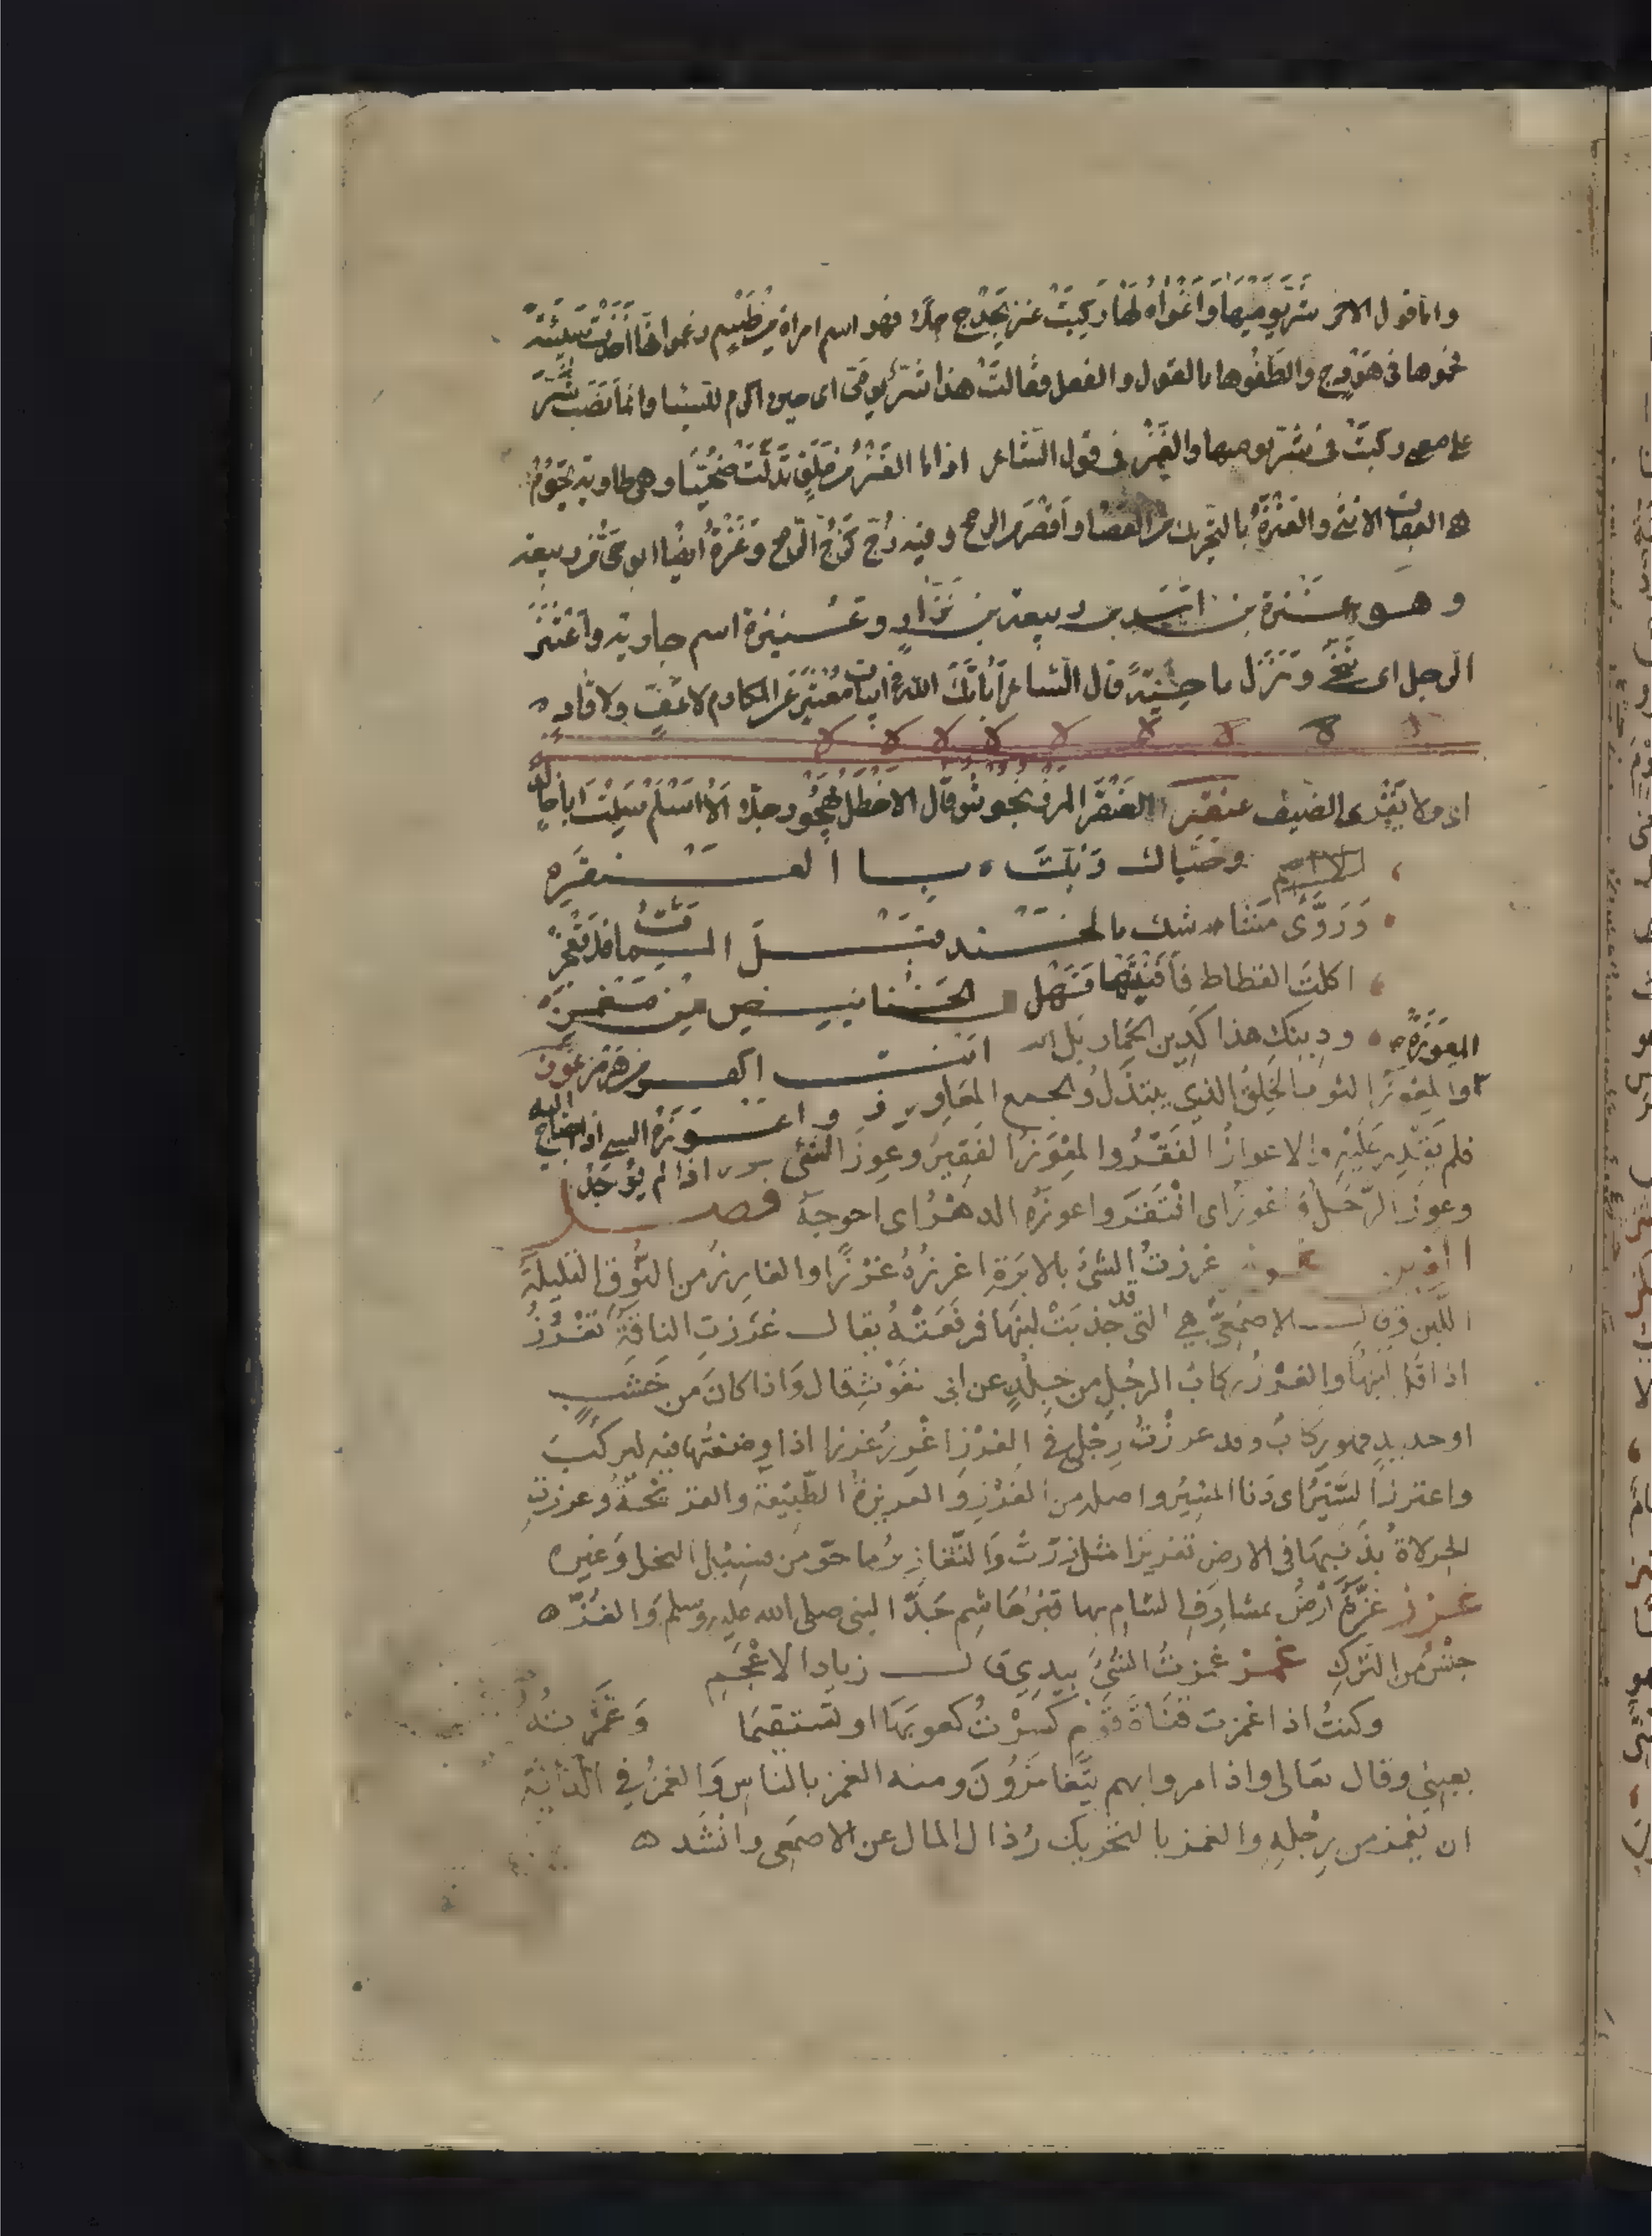 واما قول الاخر شر يوميها واغواه لها ركبت عنز بحدج جملا فهو اسم امراة من طسم زعموا انها اخذت سبيئة
فحموها فى هودج والطفوها بالقول والفعل فقالت هذا شر يومى اى حين اكرم للسبا وانما نصب شر
على معنى ركبت فى شر يوميها والعنز فى قول الشاعر اذا ما العنز من ملق تدلت ضحيا وهى طاوية تحوم
العقاب الانثى والعنزة بالتحريك من العصا واقصر من الرمح وفيه زج كزج الرمح وعنزة ايضا ابو حى من ربيعة
وهو عنزة بن اسد بن ربيعة بن نزار وعنيزة اسم جارية واعتنز
الرجل اى تنحى ونزل ناحية قال الشاعر اباتك الله فى ابيات معتنز عن المكارم لا عف ولا قار
اى ولا يقرى الضيف عنقز العنقز المرزنجوش قال الاخطل يهجو رجلا الا اسلم سلمت ابا خالد
وحياك ربك بالعنقز
وروى مشاشك بالخندريس قبل الممات فلا تعجز
اكلت القطاط فافنيتها فهل فى الخنانيص من مغمز
ودينك هذا كدين الحمار بل انت اكفر من هرمز عوز
المعوزة والمعوز الثوب الخلق الذى يبتذل والجمع المعاوز واعوزه الشى اذا احتاج اليه
فلم يقدر عليه والاعواز الفقر والمعوز الفقير وعوز الشى اذا لم يوجد
وعوز الرجل واعوز اى افتقر واعوزه الدهر اى احوجه فصل
الغين غرز غرزت الشئ بالابرة اغرزه غرزا والغارز من النوق القليلة
اللبن وقال الاصمعى هى التى قد جذبت لبنها فرفعته يقال غرزت الناقة تغرز
اذا قل لبنها والغرز ركاب الرحل من جلد عن ابى الغوث قال واذا كان من خشب
او حديد فهو ركاب وقد غرزت رجلى فى الغرز اغرز غرزا اذا وضعتها فيه لتركب
واغترز السير اى دنا المسير واصله من الغرز والغريزة الطبيعة والقريحة وغرزت
الجرادة بذنبها فى الارض تغريزا مثل رزت والتغاريز ما حول من فسيل النخل وغيره
غزز غزة ارض بمشارف الشام بها قبر هاشم جد النبى صلى الله عليه وسلم والغز
جنس من الترك غمز غمزت الشئ بيدى قال زياد الاعجم
وكنت اذا غمزت قناة قوم كسرت كعوبها او تستقيما وغمزته
بعينى وقال تعالى واذا مروا بهم يتغامزون ومنه الغمز بالناس والغمز فى الدابة
ان يغمز من رجله والغمز بالتحريك رذال المال عن الاصمعى وانشد